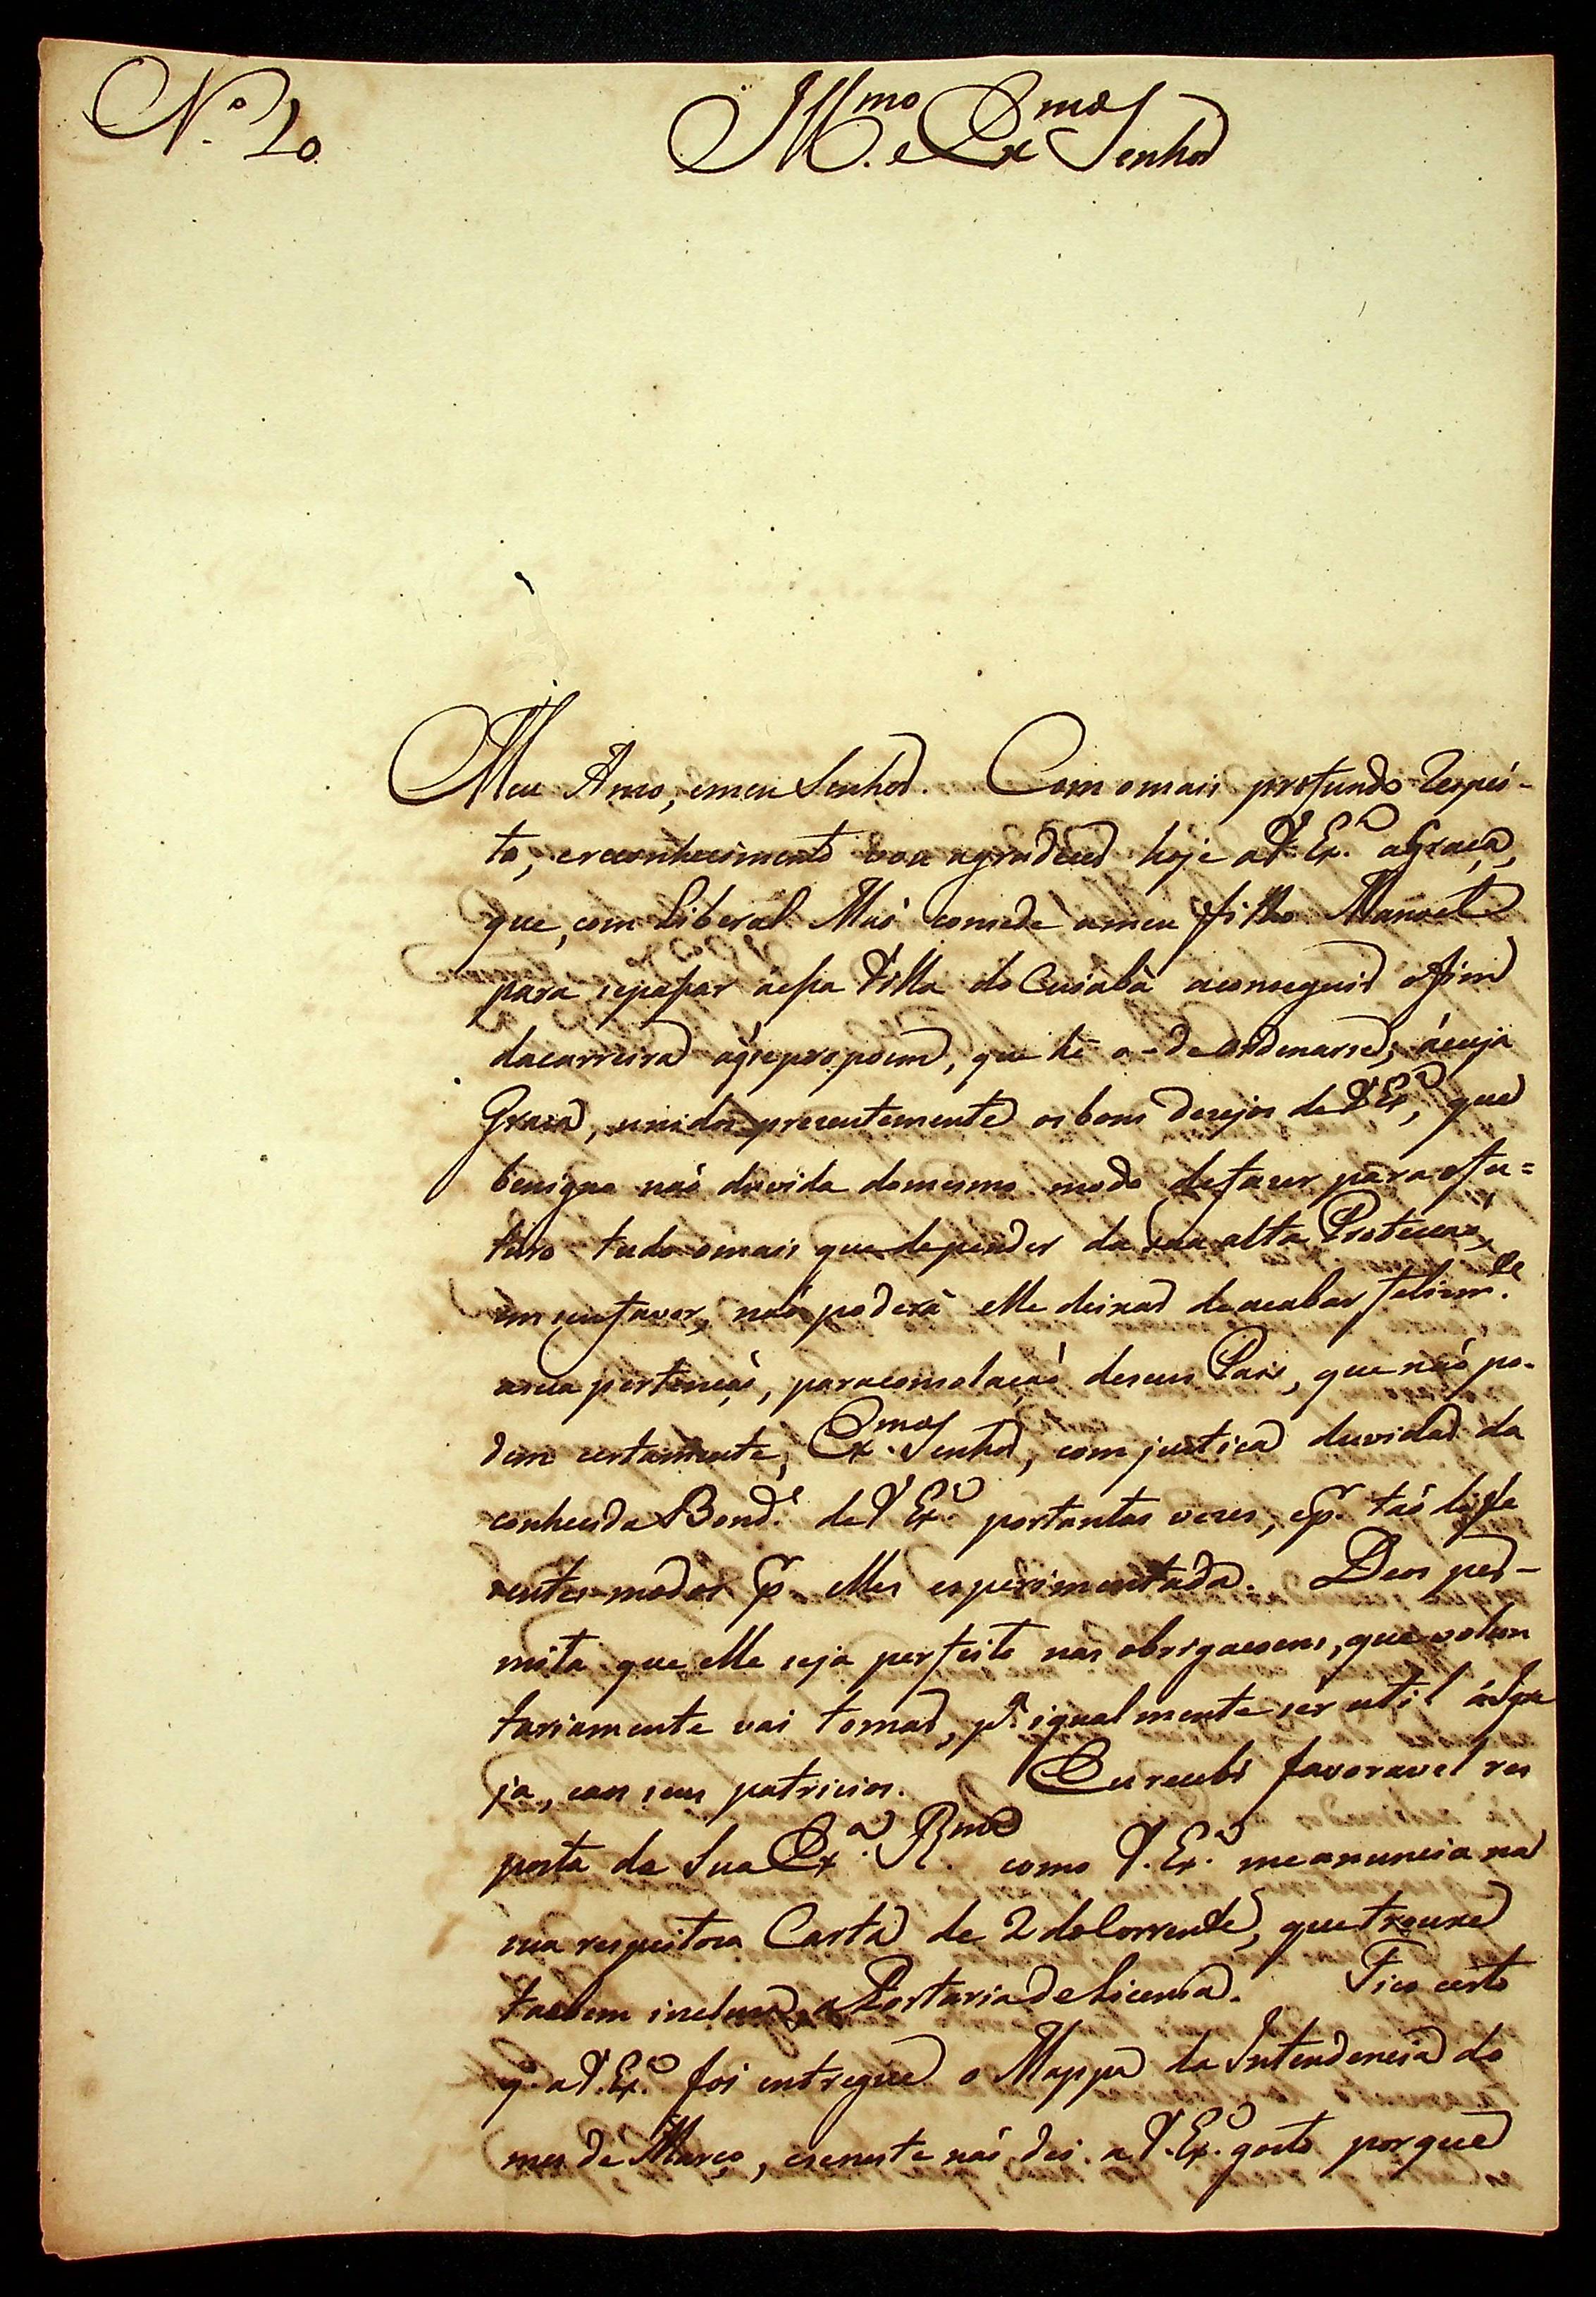 N.º 20.
Ill.mo e Ex.mo Senhor
Meu Amo, emeu Senhor. Com omais profundo Respei-
to, ereconhecimento vou agradecer hoje a V. Ex.ª aGraça,
que, com Liberal Maõ concede ameu filho Manoel
para sepaſsar aeſsa Villa do Cuiabà aconseguir ofim
dacarreira aq̃ sepropoem, que hè o-de ordenarse; ácuja
Graça, unidos prezentemente os bons dezejos de V. Ex.ª, que
benigno naõ duvida domesmo modo defazer para ofu=
turo tudo omais que depender da Sua alta Protecçaõ,
em seu favor, naõ poderà elle deixar de acabar felizm.te
asua pertençaõ, paraconsolaçaõ deseus Pais, que naõ po-
dem certamente, Ex.mo Senhor, com justiça duvidar da
conhecida Bond.e de V. Ex.ª portantas vezes, ep.r taõ dife
rentes modos p.r elles experimentada. Deos per-
mita que elle seja perfeito nas obrigaçoens, que volun
tariamente vai tomar, p.ª igualmente ser util áIgre
ja, eaos seus patricios. Eu recebi favoravel res
posta de Sua Ex.ª R.ma como V. Ex.ª meanuncia na
sua respeitoza Carta de 2 doCorrente, que trouxe
taobem incluza a Portaria de Licença. Fico certo
q.' a V. Ex.ª foi entregue o Mappa da Intendencia do
mes de Março, eseneste naõ dei a V. Ex.ª gosto porque